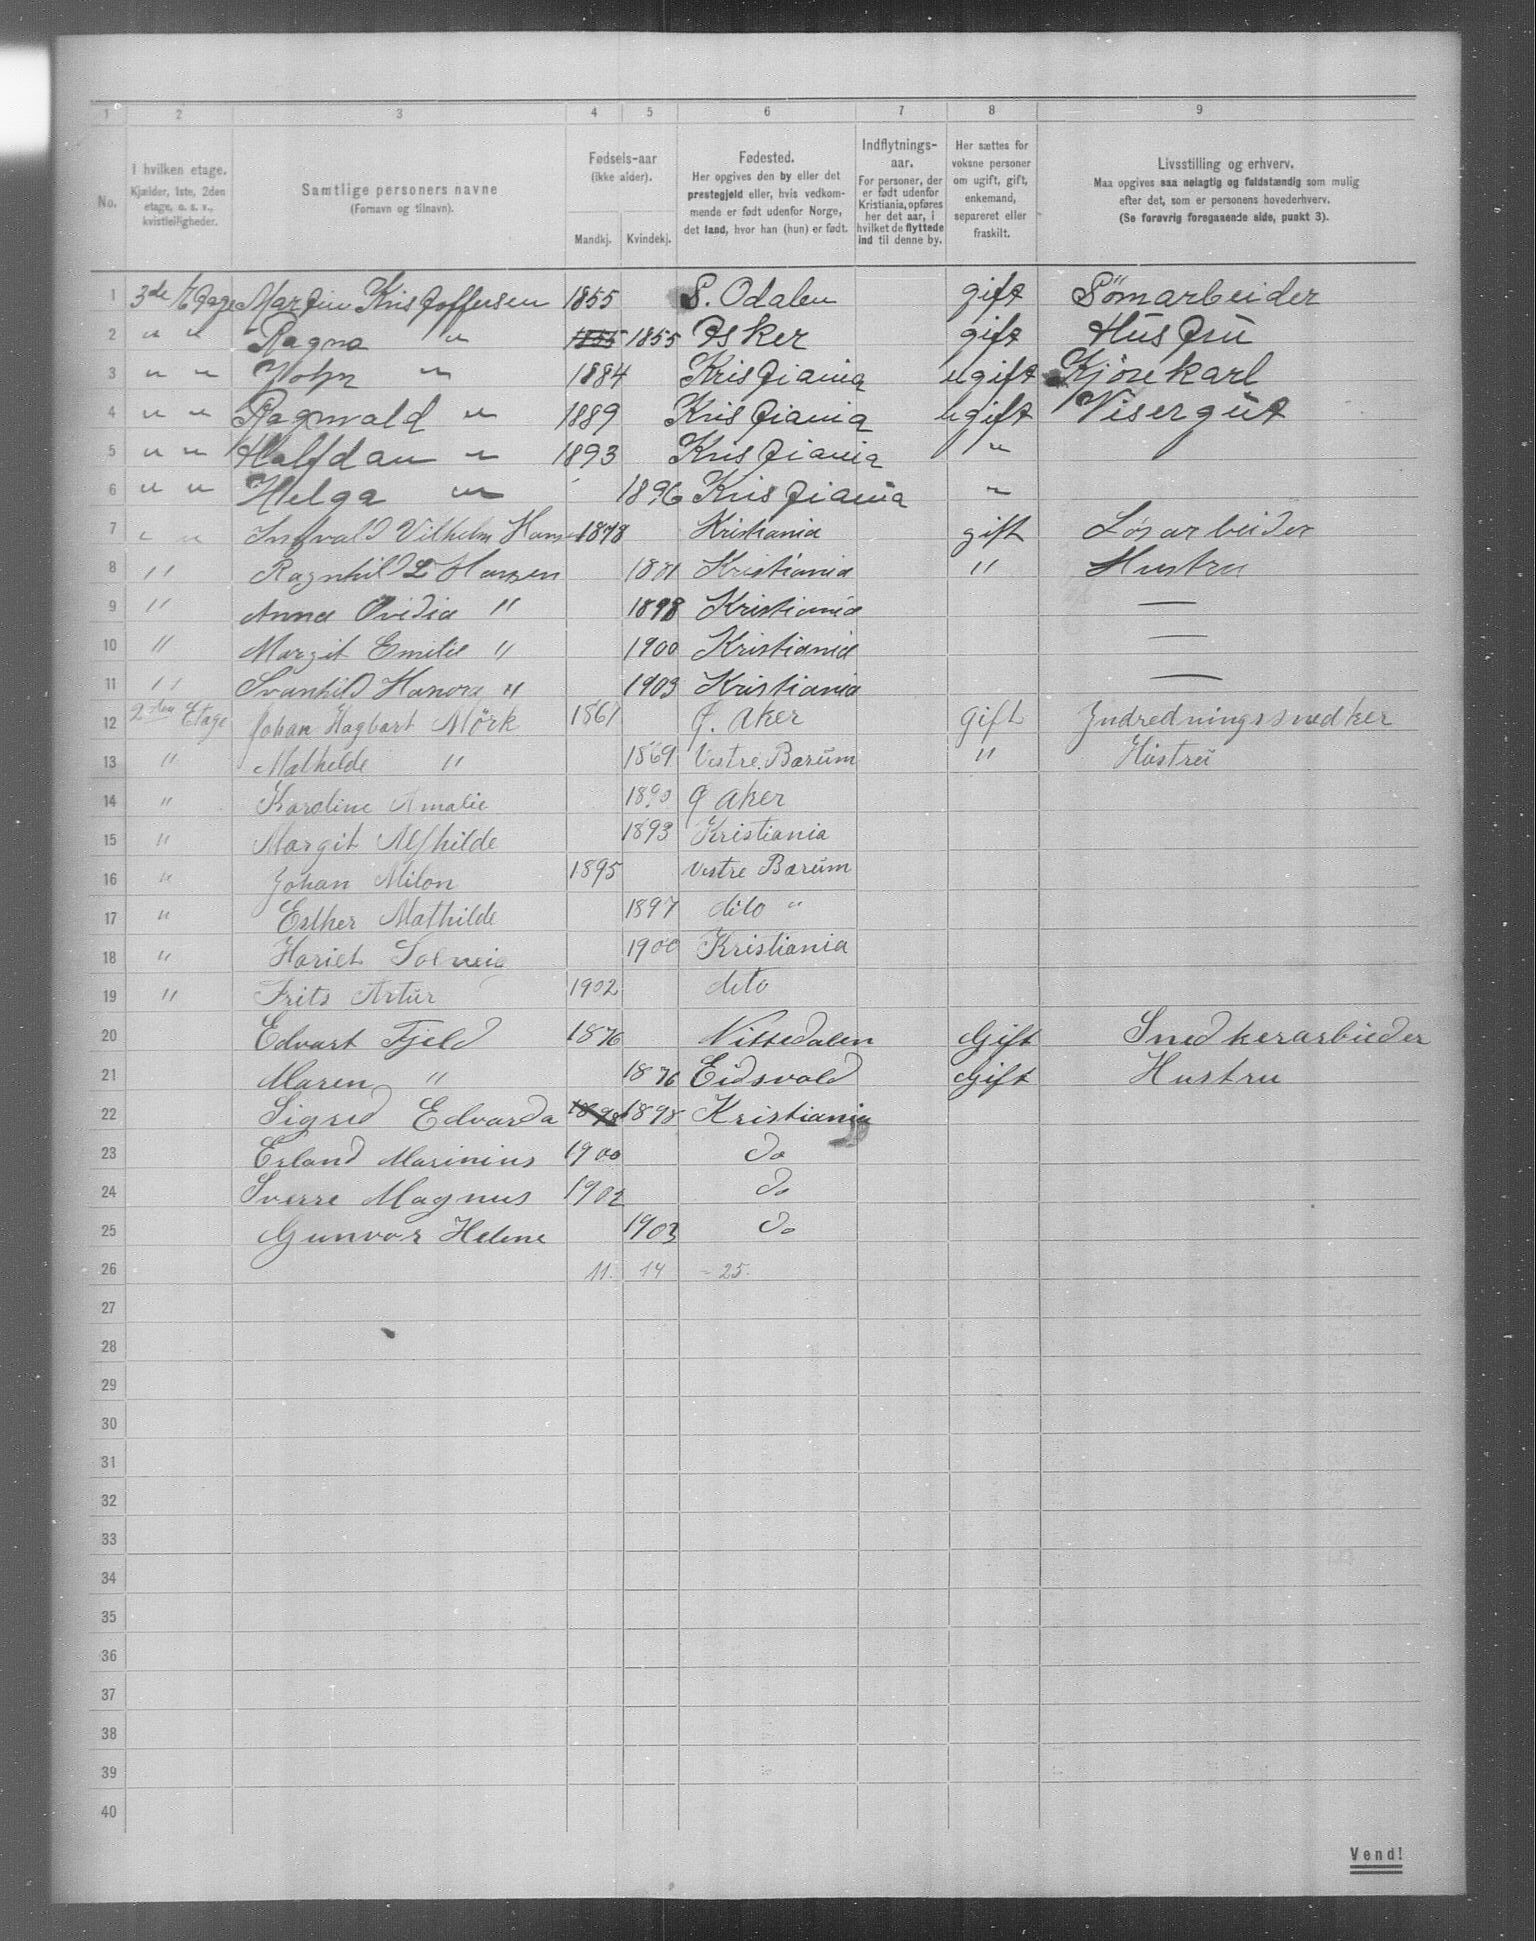 1 2 3 4 5 6 7 8 9
No.
I hvilken etage.
Kjælder, 1ste, 2den
etage, o. s. v.,
kvistleiligheder.
Samtlige personers navne
(Fornavn og tilnavn).
Fødsels-aar
(ikke alder).
Mandkj. Kvindekj.
Fødested.
Her opgives den by eller det
prestegjeld eller, hvis vedkom-
mende er født udenfor Norge,
det land, hvor han (hun) er født.
Indflytnings-
aar.
For personer, der
er født udenfor
Kristiania, opføres
her det aar, i
hvilket de flyttede
ind til denne by.
Her sættes for
voksne personer
om ugift, gift,
enkemand,
separeret eller
fraskilt.
Livsstilling og erhverv.
Maa opgives saa nøiagtig og fuldstændig som mulig
efter det, som er personens hovederhverv.
(Se forøvrig foregaaende side, punkt 3).
1 3de Etage Martin Kristoffersen 1855 S. Odalen gift Sömarbeider
2 " " Ragna " 1855 1855 Asker gift Hustru
3 " " John " 1884 Kristiania ugift Kjörekarl
4 " " Ragnvald " 1889 Kristiania ugift Visergut
5 " " Halfdan " 1893 Kristiania "
6 " " Helga " 1896 Kristiania "
7 " " Ingvald Vilhelm Hansen 1878 Kristiania gift Løsarbeider
8 " Ragnhild L Hansen Kristiania " Hustru
9 " Anna Ovidia " 1898 Kristiania —
10 " Margit Emilie " 1900 Kristiania —
11 " Svanhild Hanora " 1903 Kristiania —
12 2den Etage Johan Hagbart Mörk 1861 Ø. Aker Gift Indredningssnedker
13 " Mathilde " 1869 Vestre Bærum " Hustru
14 " Karoline Amalie 1890 Ø Aker
15 " Margit Alfhilde 1893 Kristiania
16 " Johan Milon 1895 Vestre Bærum
17 " Esther Mathilde 1897 dito "
18 " Hariet Solveig 1900 Kristiania
19 " Frits Artur 1902 dito
20 Edvart Fjeld 1876 Nittedalen Gift Snedkerarbieder
21 Maren " 1876 Eidsvold Gift Hustru
22 Sigred Edvarda 1898 1898 Kristiania
23 Erland Marinius 1900 do
24 Sverre Magnus 1902 do
25 Gunvor Helene 1903 do
26 11. 14 - 25.
27
28
29
30
31
32
33
34
35
36
37
38
39
40
Vend!